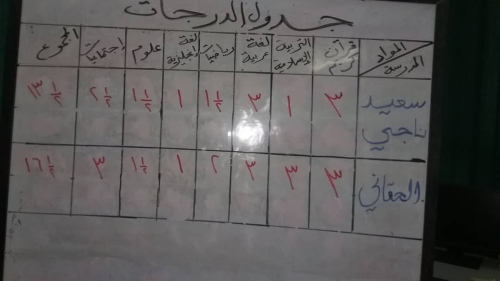 جدول الدرجات
المواد المدرسة قرآن كريم التربية الإسلامية لغة عربية رياضيات لغة إنجليزية علوم اجتماعيات المجموع
سعيد ناجي ٣ ١ ٣ ١ ١/٢ ١ ١ ١/٢ ٢ ١/٢ ١٣ ١/٢
الحقاني ٣ ٣ ٣ ٢ ١ ١ ١/٢ ٣ ١٦ ١/٢